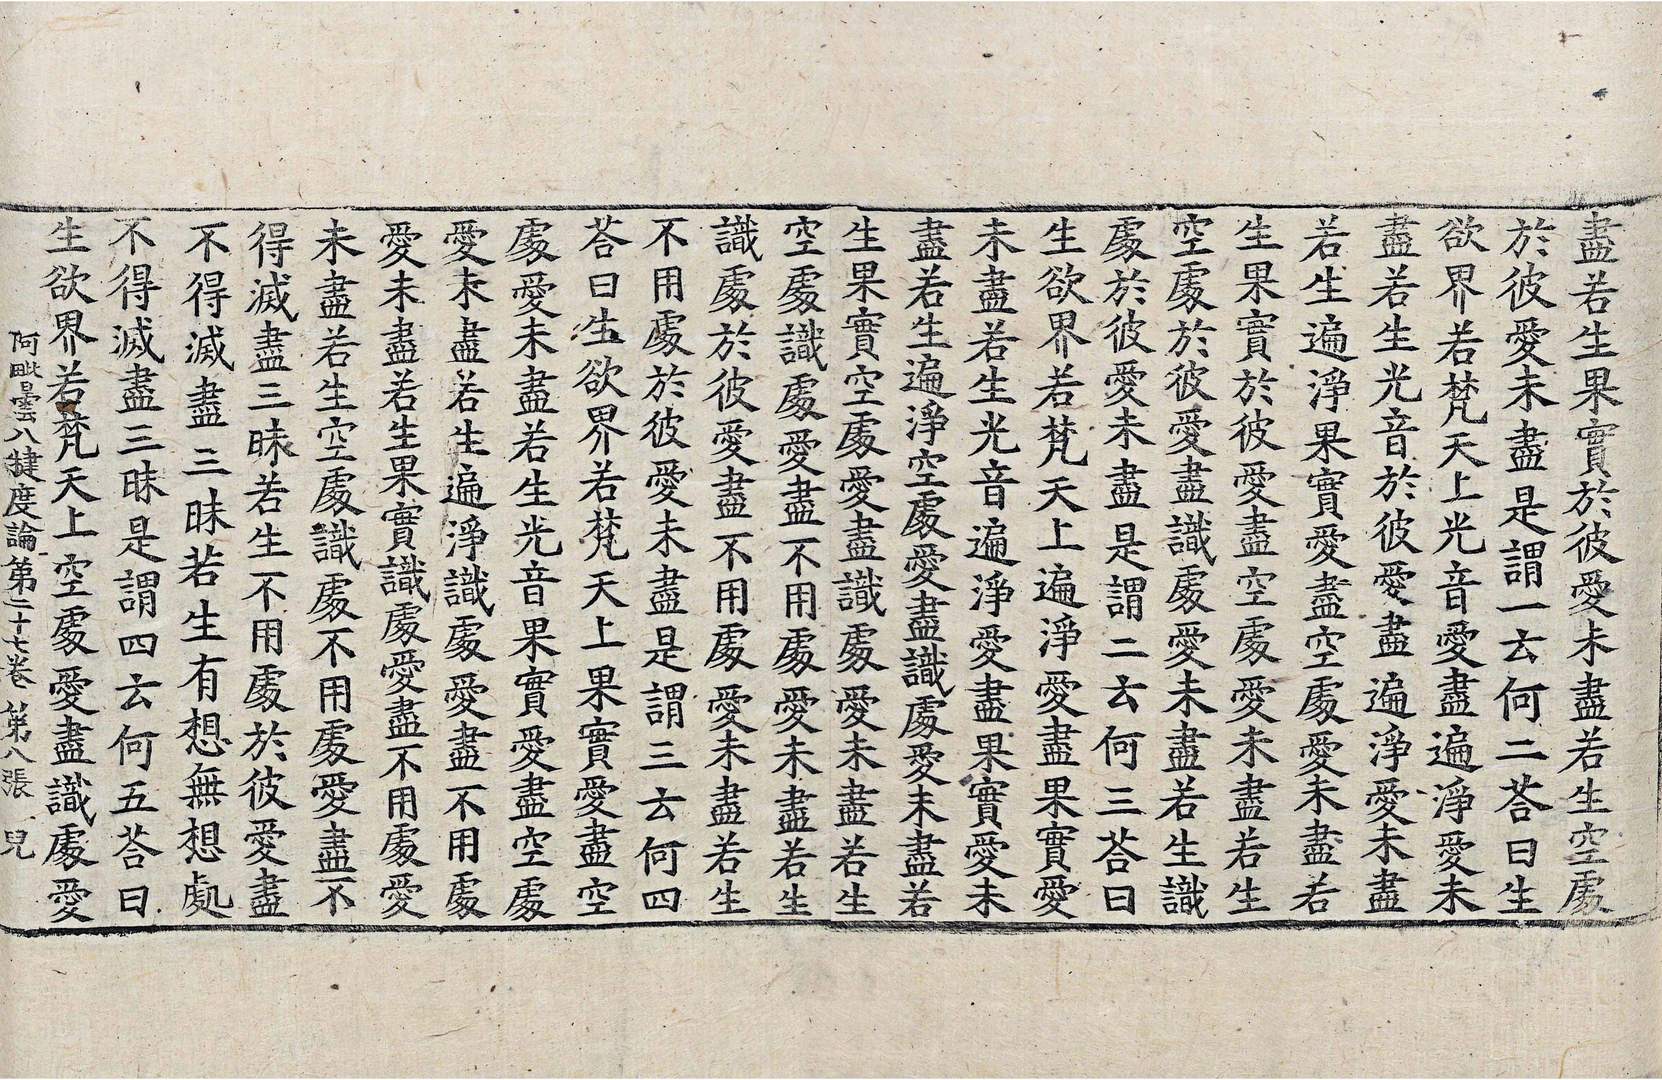 盡若生果實於彼愛未盡若生空處
於彼愛未盡是謂一云何二荅曰生
欲界若梵天上光音愛盡遍淨愛未
盡若生光音於彼愛盡遍淨愛未盡
若生遍淨果實愛盡空處愛未盡若
生果實於彼愛盡空處愛未盡若生
空處於彼愛盡識處愛未盡若生識
處於彼愛未盡是謂二云何三荅曰
生欲界若梵天上遍淨愛盡果實愛
未盡若生光音遍淨愛盡果實愛未
盡若生遍淨空處愛盡識處愛未盡若
生果實空處愛盡識處愛未盡若生
空處識處愛盡不用處愛未盡若生
識處於彼愛盡不用處愛未盡若生
不用處於彼愛未盡是謂三云何四
荅曰生欲界若梵天上果實愛盡空
處愛未盡若生光音果實愛盡空處
愛未盡若生遍淨識處愛盡不用處
愛未盡若生果實識處愛盡不用處愛
未盡若生空處識處不用處愛盡不
得滅盡三昧若生不用處於彼愛盡
不得滅盡三昧若生有想無想處
不得滅盡三昧是謂四云何五荅曰
生欲界若梵天上空處愛盡識處愛
阿毗曇八揵度論第二十七卷 第八張 兒